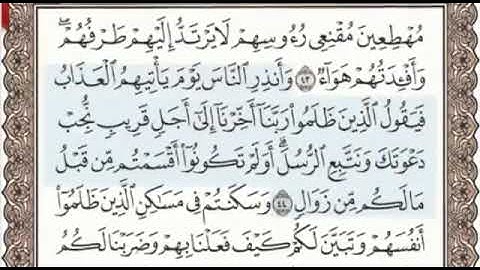 مُهْطِعِينَ مُقْنِعِي رُءُوسِهِمْ لَا يَرْتَدُّ إِلَيْهِمْ طَرْفُهُمْ ۖ
وَأَفْـِٔدَتُهُمْ هَوَآءٌ ٤٣ وَأَنذِرِ ٱلنَّاسَ يَوْمَ يَأْتِيهِمُ ٱلْعَذَابُ
فَيَقُولُ ٱلَّذِينَ ظَلَمُوا۟ رَبَّنَآ أَخِّرْنَآ إِلَىٰٓ أَجَلٍ قَرِيبٍ نُّجِبْ
دَعْوَتَكَ وَنَتَّبِعِ ٱلرُّسُلَ ۗ أَوَلَمْ تَكُونُوٓا۟ أَقْسَمْتُم مِّن قَبْلُ
مَا لَكُم مِّن زَوَالٍ ٤٤ وَسَكَنتُمْ فِي مَسَٰكِنِ ٱلَّذِينَ ظَلَمُوٓا۟
أَنفُسَهُمْ وَتَبَيَّنَ لَكُمْ كَيْفَ فَعَلْنَا بِهِمْ وَضَرَبْنَا لَكُمُ